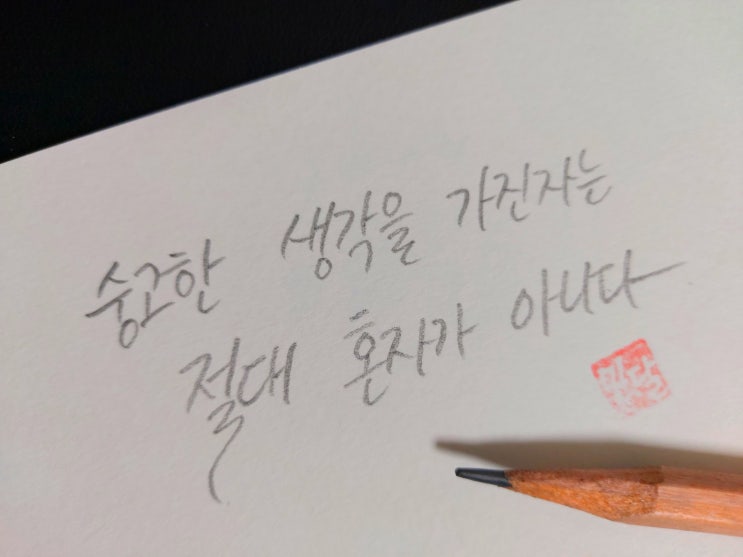 숭고한 생각을 가진자는
절대 혼자가 아니다